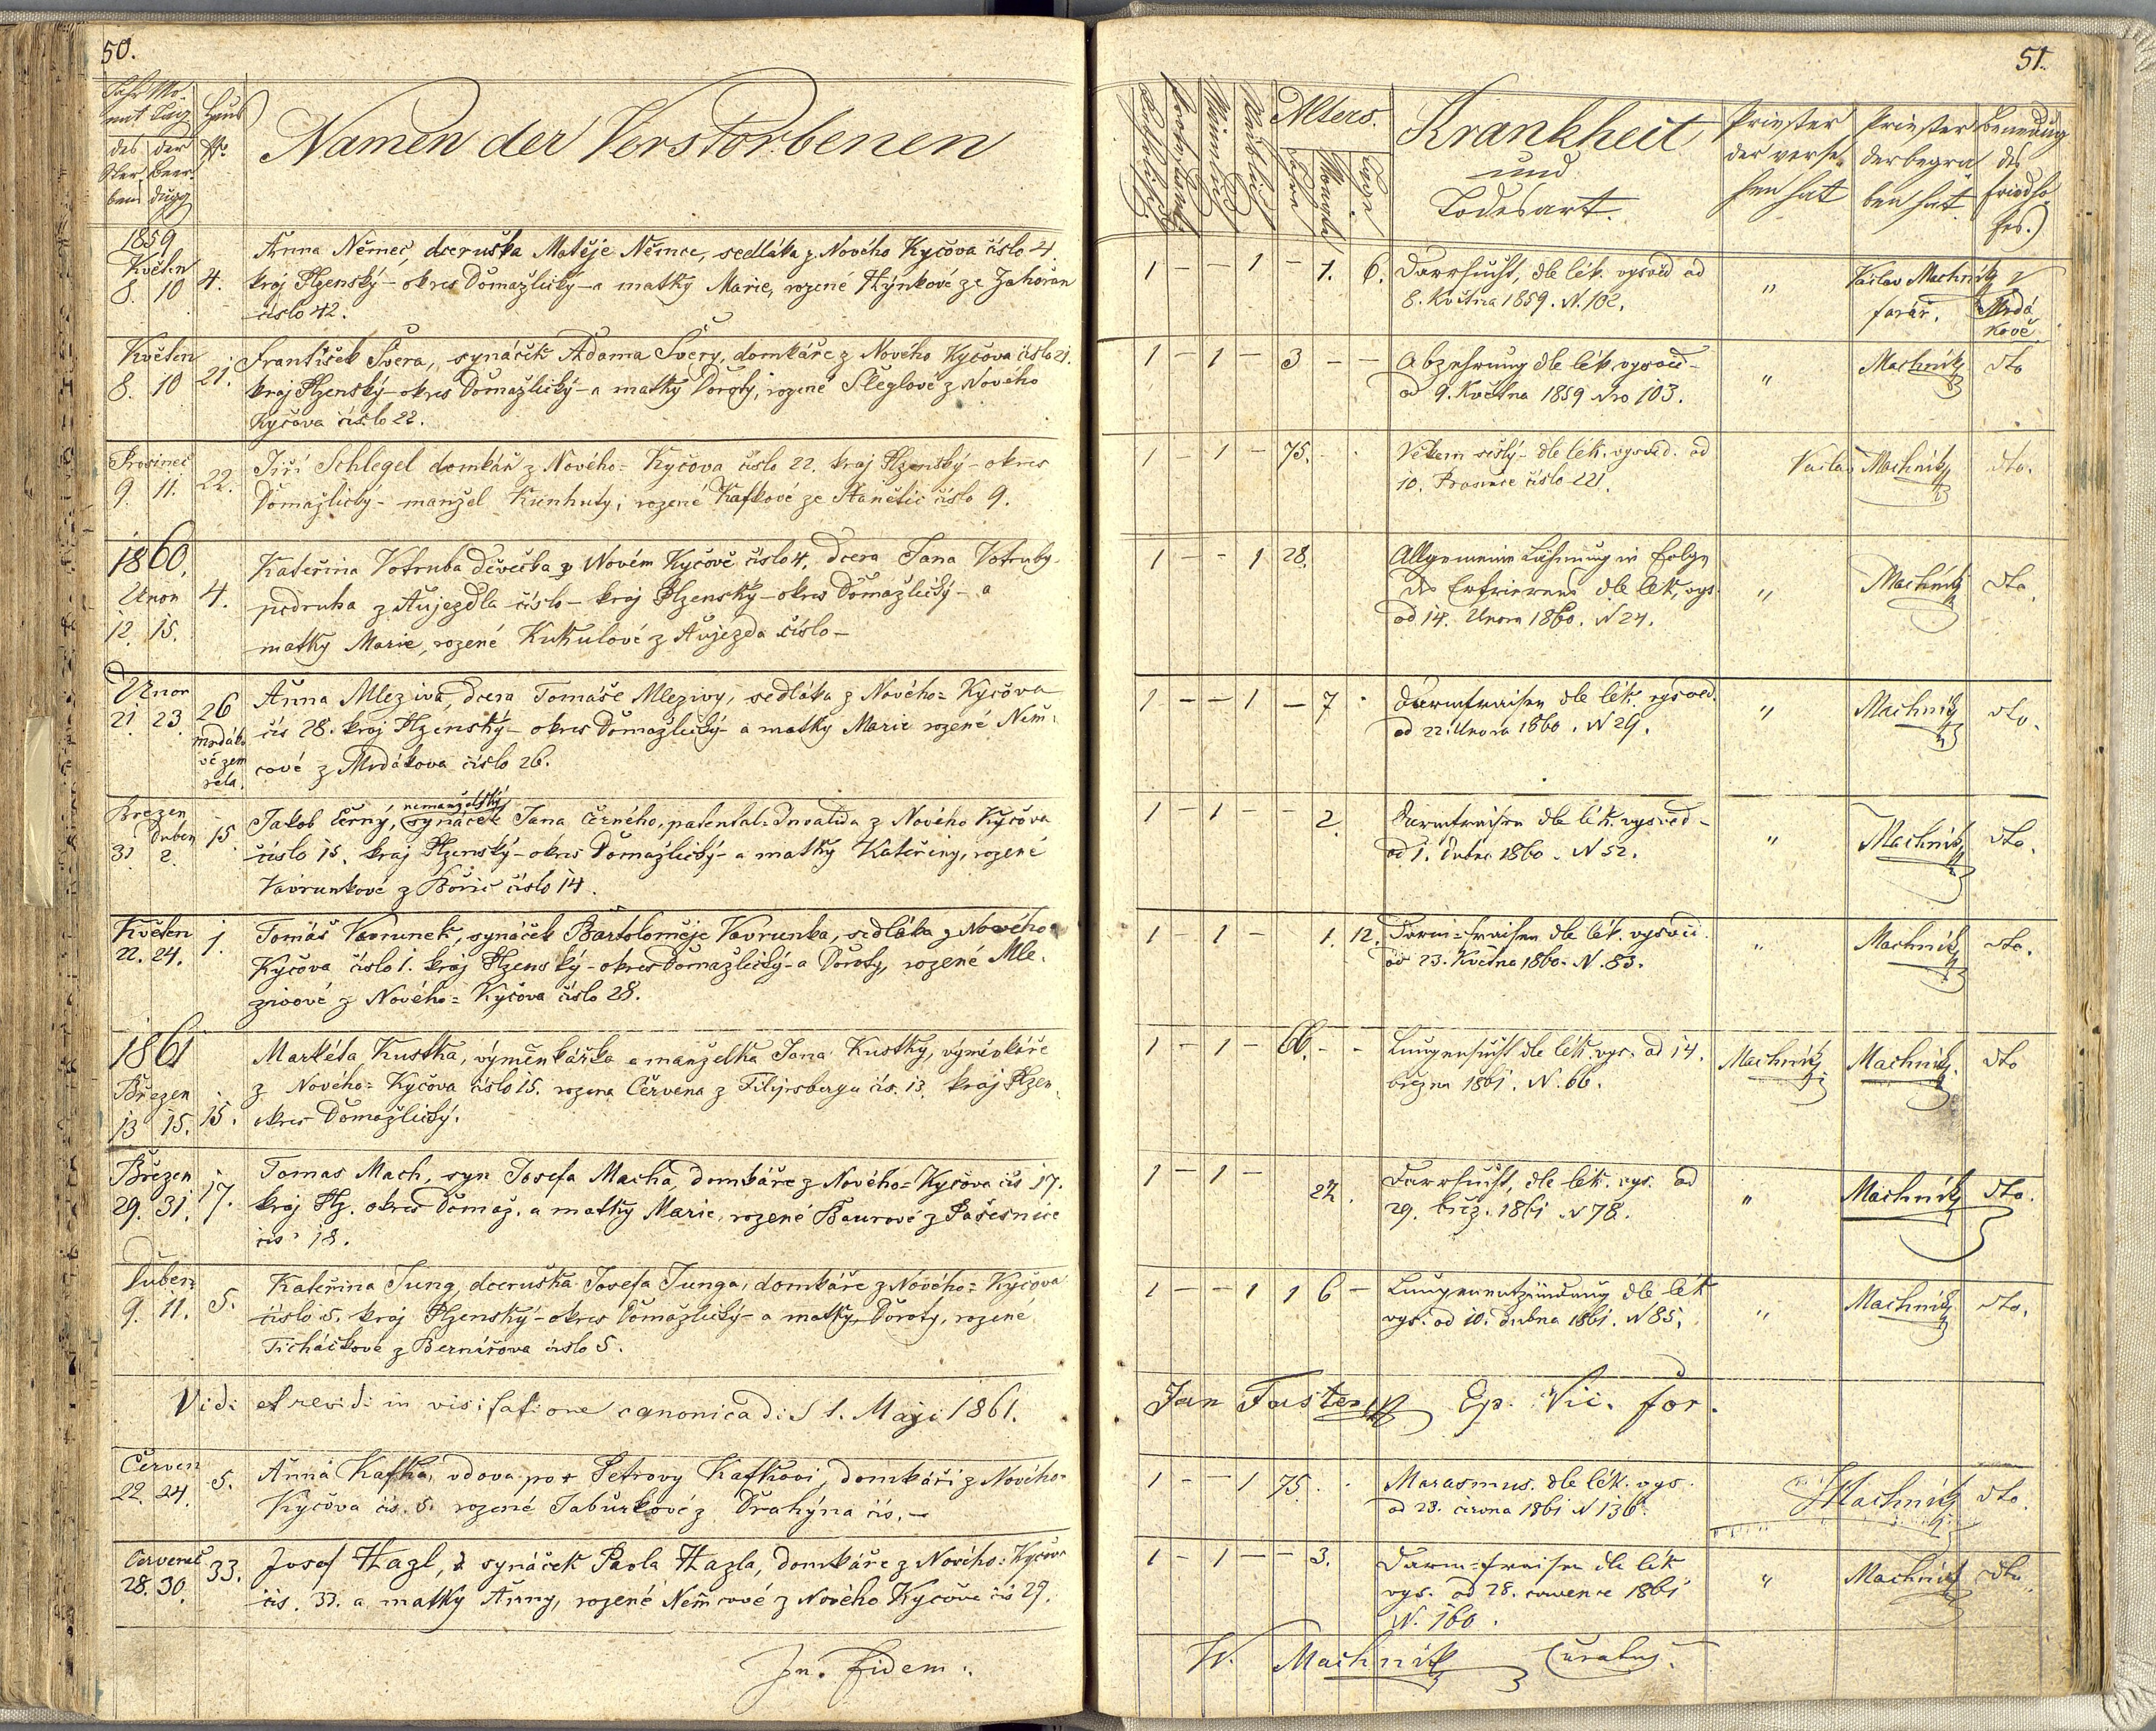 50.
Jahr Monat Tag
des Sterbens
der Beerdigung
Haus
Nr.
Namen der Verstorbenen
1859
Květen
8. 10
4.
Anna Němec, dceruška Matěje Němce, sedláka z Nového Kyčova číslo 4.
kraj Plzenský - okres Domažlický - a matky Marie, rozené Hýnkové ze Zahořan
číslo 42.
Květen
8. 10
21.
František Švera, synáček Adama Švery, domkáře z Nového Kyčova číslo 21.
kraj Plzenský - okres Domažlický - a matky Doroty, rozené Šléglové z Nového
Kyčova číslo 22.
Prosinec
9. 11.
22.
Jiří Schlegel domkář z Nového = Kyčova číslo 22. kraj Plzenský - okres
Domažlický - manžel Kunhuty, rozené Kafkové ze Staňětic číslo 9.
1860.
Unor
12. 15.
4.
Kateřina Votruba děvečka z Novém Kyčově číslo 4. dcera Jana Votruby
podruha z Aujezdla číslo - kraj Plzenský - okres Domažlický - a
matky Marie, rozené Kukulové z Aujezda číslo -
Unor
21. 23
26
mrdáko
vě zem
řela.
Anna Mleziva, dcera Tomáše Mlezivy, sedláka z Nového = Kyčova
čís 28. kraj Plzenský - okres Domažlický - a matky Marie rozené Něm
cové z Mrdákova číslo 26.
Březen
Duben
31 2.
15.
nemanželský
Jakob Černý, synáček Jana Černého, patental = Invalida z Nového Kyčova
číslo 15. kraj Plzenský - okres Domažlický - a matky Kateřiny, rozené
Vavrunkové z Bořic číslo 14.
Květen
22. 24.
1.
Tomáš Vavrunek, synáček Bartoloměje Vavrunka, sedláka z Nového =
Kyčova číslo 1. kraj Plzenský - okres Domažlický - a Doroty, rozené Mle
zivové z Nového = Kyčova číslo 28.
1861
Březen
13 15.
15.
Markéta Kustka, výměnkářka a manželka Jana Kustky, výměnkáře
z Nového = Kyčova číslo 15. rozena Červena z Filipsbergu čís. 13. kraj Plzen
okres Domažlický.
Březen
29. 31.
17.
Tomas Mach, syn Josefa Macha, domkáře z Nového = Kyčova čís 17.
kraj Plz. okres Domaž. a matky Marie, rozené Baurové z Pašesnice
čís 18.
Duben
9. 11.
5.
Kateřina Jung, dceruška Josefa Junga, domkáře z Nového = Kyčova
číslo 5. kraj Plzenský - okres Domažlický - a matky Doroty, rozené
Ticháčkové z Bernířova číslo 5.
Vidi et revidi in visitatione canonica di 1. Maji 1861.
Červen
22. 24.
5.
Anna Kafka, vdova po + Petrovy Kafkovi, domkáři z Nového =
Kyčova čís. 5. rozené Jabůrkové z Drahýna čís. -
Červenec
28. 30.
33.
Josef Hazl, synáček Pavla Hazla, domkáře z Nového = Kyčova
čís. 33. a matky Anny, rozené Němcové z Nového Kyčova čís 29.
In. fidem.
51.
Katholisch
Protestantisch
Männlich
Weiblich
Alters.
Jahre
Monate
Tage
Krankheit
und
Todesart.
Priester
der verse
hen hat
Priester
der begra
ben hat
Benennung
des
Friedho
fes.
1 - - 1 - 1. 6. Darrsucht, dle lék. vysvěd od
8. Května 1859. N. 102.
"
Václav Machník
farář.
v
Mrdá
kově.
1 - 1 - 3 - - Abzehrung dle lék. vysvěd -
od 9. Května 1859 Nro 103.
"
Machník
dto
1 - 1 - 75. - . Věkem sešlý - dle lék. vysvěd. od
10. Prosince číslo 221.
Václav Machník
dto.
1 - - 1 28. Allgemeine Lähmung in Folge
des Erfrierens dle lék. vys.
od 14. Unora 1860. N 24.
"
Machník
dto.
1 - - 1 - 7 . Darmfraisen dle lék. vysvěd.
od 22. Unora 1860. N 29.
"
Machník
dto.
1 - 1 - - 2. Darmfraisen dle lék. vysvěd -
od 1. dubna 1860. N 52.
"
Machník
dto.
1 - 1 - 1. 12. Darm = fraisen dle lék. vysvěd.
od 23. Května 1860. N. 83.
"
Machník
dto.
1 - 1 - 66. - - Lungensucht dle lék. vys. od 14.
března 1861. N. 66.
Machník
Machník.
dto
1 - 1 - 22. Darrsucht, dle lék. vys. od
29. břez. 1861 N 78.
"
Machník
dto.
1 - - 1 1 6 - Lungenentzündung dle lék
vys. od 10. dubna 1861. N 85.
"
Machník
dto.
Jan Ep. Vic. for.
1 - - 1 75. . . Marasmus. dle lék. vys.
od 23. června 1861 N 136.
Machník
dto.
1 - 1 - - 3. Darm = fraisen dle lék
vys. od 28. července 1861
N. 160.
"
Machník
dto.
W. Machník Curatus.